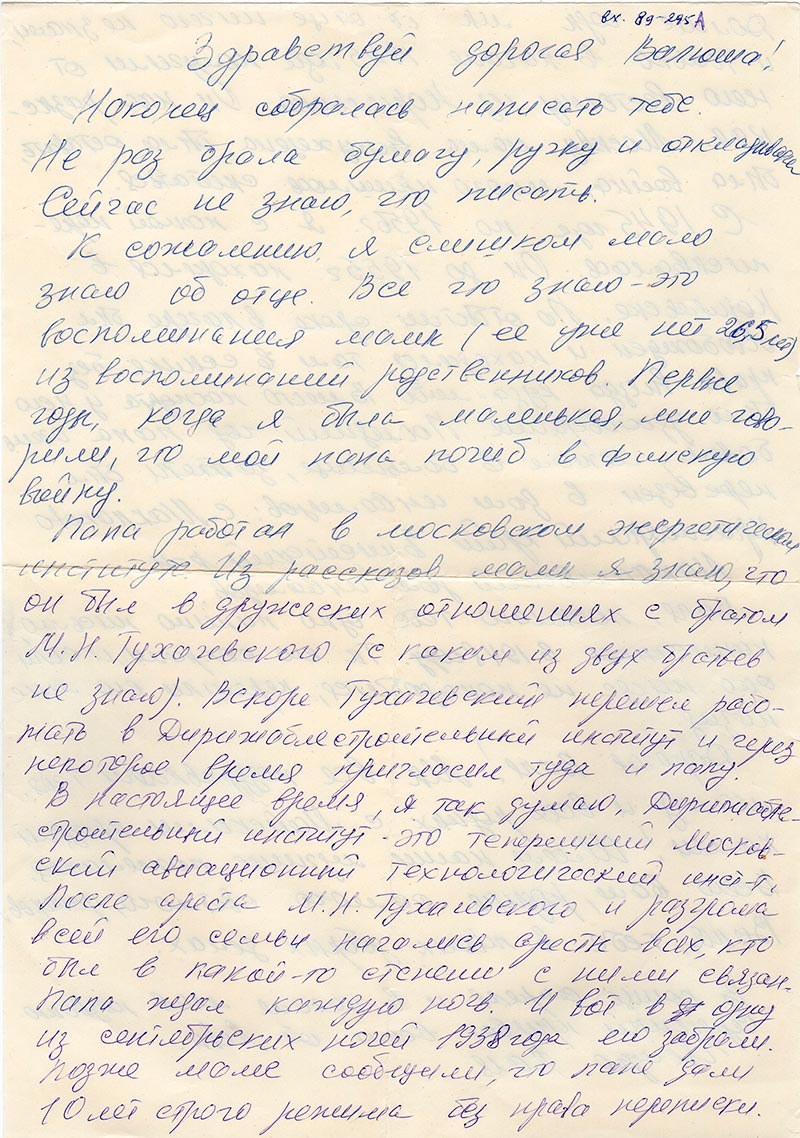 вх. 89-295А
Здравствуй дорогая Валюша!
Наконец собралась написать тебе.
Не раз брала бумагу, ручку и откладывала
Сейчас не знаю, что писать.
К сожалению, я слишком мало
знаю об отце. Все что знаю-это
воспоминания мамы (ее уже нет 26,5 лет)
из воспоминаний родственников. Первые
годы, когда я была маленькая, мне гово-
рили, что мой папа погиб в финскую
войну.
Папа работал в московском энергетическом
институте. Из рассказов мамы я знаю, что
он был в дружеских отношениях с братом
М.Н. Тухачевского (с каким из двух братьев
не знаю). Вскоре Тухачевский перешел рабо-
тать в Дирижаблестроительный институт и через
некоторое время пригласил туда и папу.
В настоящее время, я так думаю, Дирижабле-
строительный институт-это теперешний Москов-
ский авиационный технологический инст-т.
После ареста М.Н. Тухачевского и разгрома
всей его семьи начались аресты всех, кто
был в какой-то степени с ними связан.
Папа ждал каждую ночь. И вот в одну
из сентябрьских ночей 1938 года его забрали.
Позже маме сообщили, что папе дали
10 лет строго режима без права переписки.